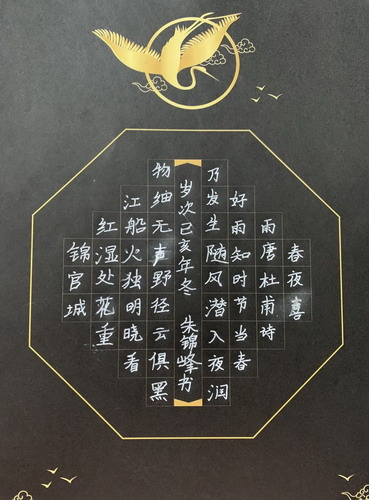 春夜喜
雨唐杜甫诗
好雨知时节当春
乃发生随风潜入夜润
岁次己亥年冬 朱锦峰书
物细无声野径云俱黑
江船火独明晓看
红湿处花重
锦官城